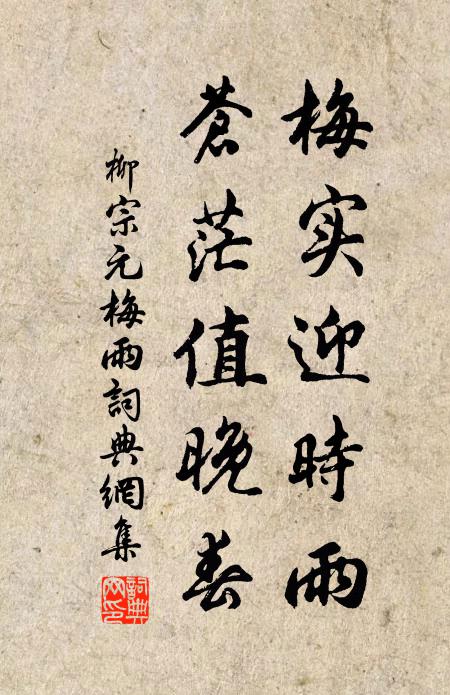 梅实迎時雨
蒼茫值晚春
柳宗元梅雨詞典網集
詞典網印